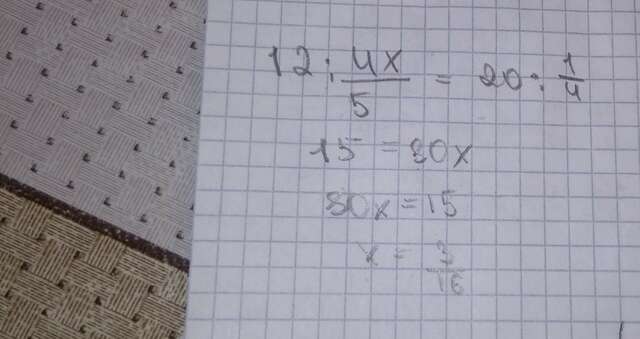 12 : 4x/5 = 20 : 1/4
15 = 80x
80x = 15
x = 3/16